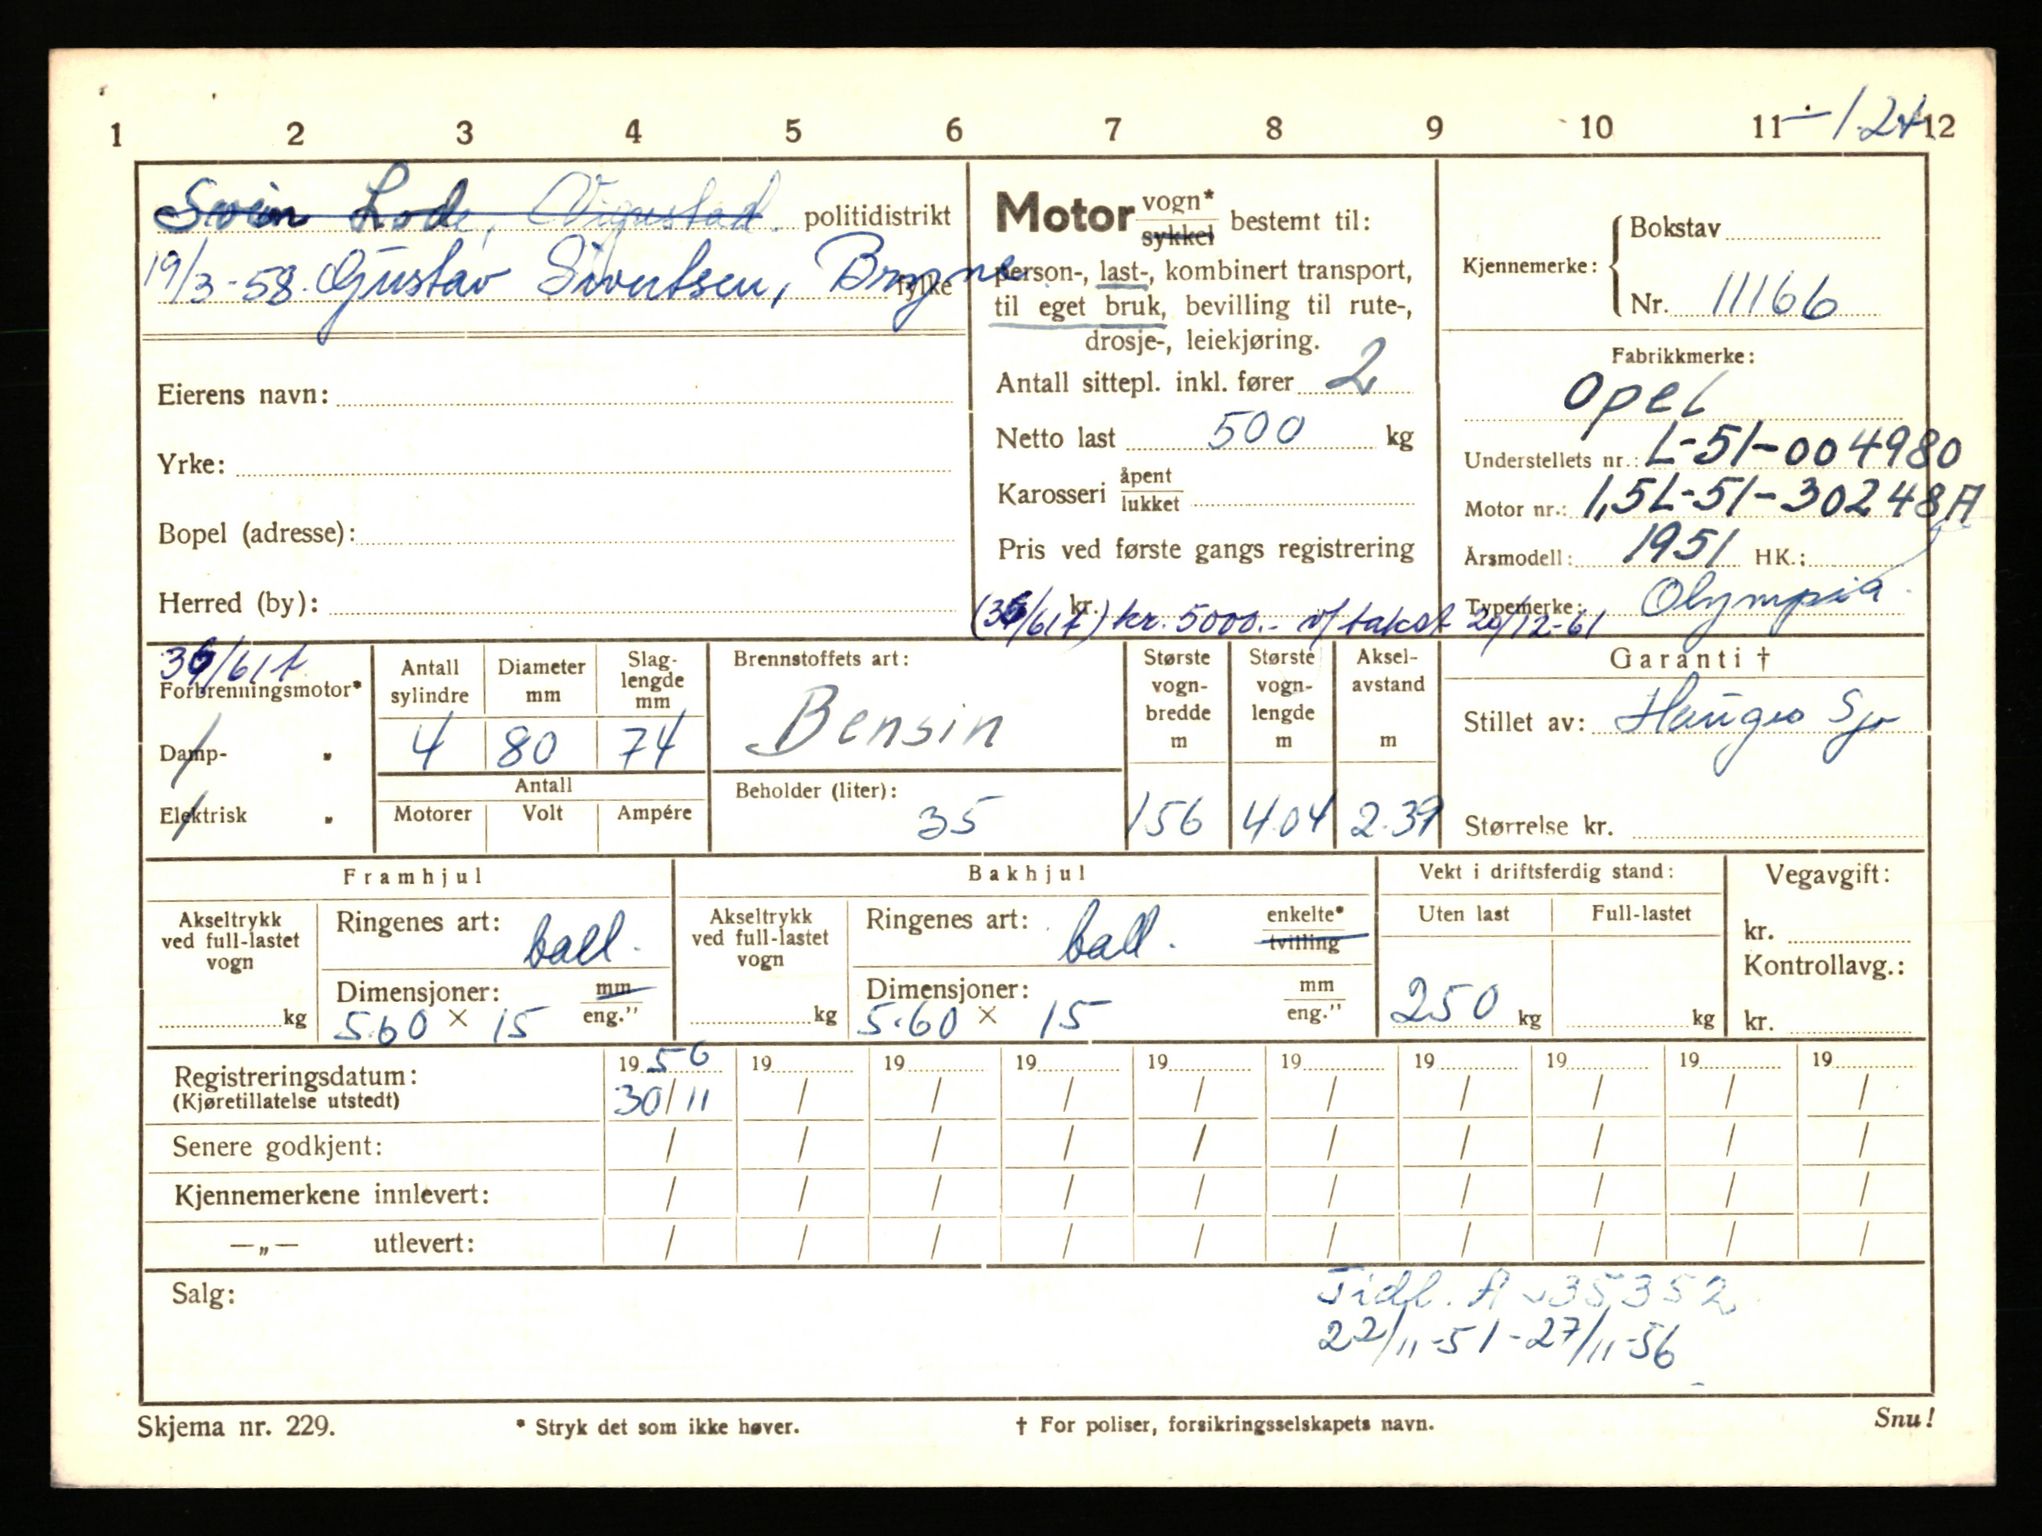 1 2 3 4 5 6 7 8 9 10 11 12
Svein Lode, Vigrestad. politidistrikt
19/3-58. Gustav Sivertsen, Bryne fylke
Eierens navn:
Yrke:
Bopel (adresse):
Herred (by):
Motor vogn* sykkel bestemt til:
person-, last-, kombinert transport,
til eget bruk, bevilling til rute-,
drosje-, leiekjøring.
Antall sittepl. inkl. fører 2
Netto last 500 kg
Karosseri åpent lukket
Pris ved første gangs registrering
kr. kr. 5000.- v/takst 20/12-61
Kjennemerke: Bokstav
Nr. 11166
Fabrikkmerke:
Opel
Understellets nr.: L-51-004980
Motor nr.: 1,5L-51-30248A
Årsmodell: 1951 HK.:
Typemerke: Olympia
Forbrenningsmotor*
Damp- „
Elektrisk „
Antall sylindre 4
Diameter mm 80
Slag-lengde mm 74
Antall
Motorer Volt Ampére
Brennstoffets art:
Bensin
Beholder (liter):
35
Største vogn-bredde m 156
Største vogn-lengde m 4.04
Aksel-avstand m 2.39
Garanti †
Stillet av: Hauges Sj
Størrelse kr.
Framhjul
Akseltrykk ved full-lastet vogn kg
Ringenes art: ball.
Dimensjoner: mm eng."
5.60 × 15
Bakhjul
Akseltrykk ved full-lastet vogn kg
Ringenes art: ball. enkelte* tvilling
Dimensjoner: mm eng."
5.60 × 15
Vekt i driftsferdig stand:
Uten last Full-lastet
250 kg kg
Vegavgift:
kr.
Kontrollavg.:
kr.
Registreringsdatum: 1956 19 19 19 19 19 19 19 19 19
(Kjøretillatelse utstedt) 30/11 / / / / / / / / /
Senere godkjent: / / / / / / / / / /
Kjennemerkene innlevert: / / / / / / / / / /
—„— utlevert: / / / / / / / / / /
Salg:
Tidl. A-35352
22/11-51-27/11-56
Skjema nr. 229. * Stryk det som ikke høver. † For poliser, forsikringsselskapets navn. Snu!